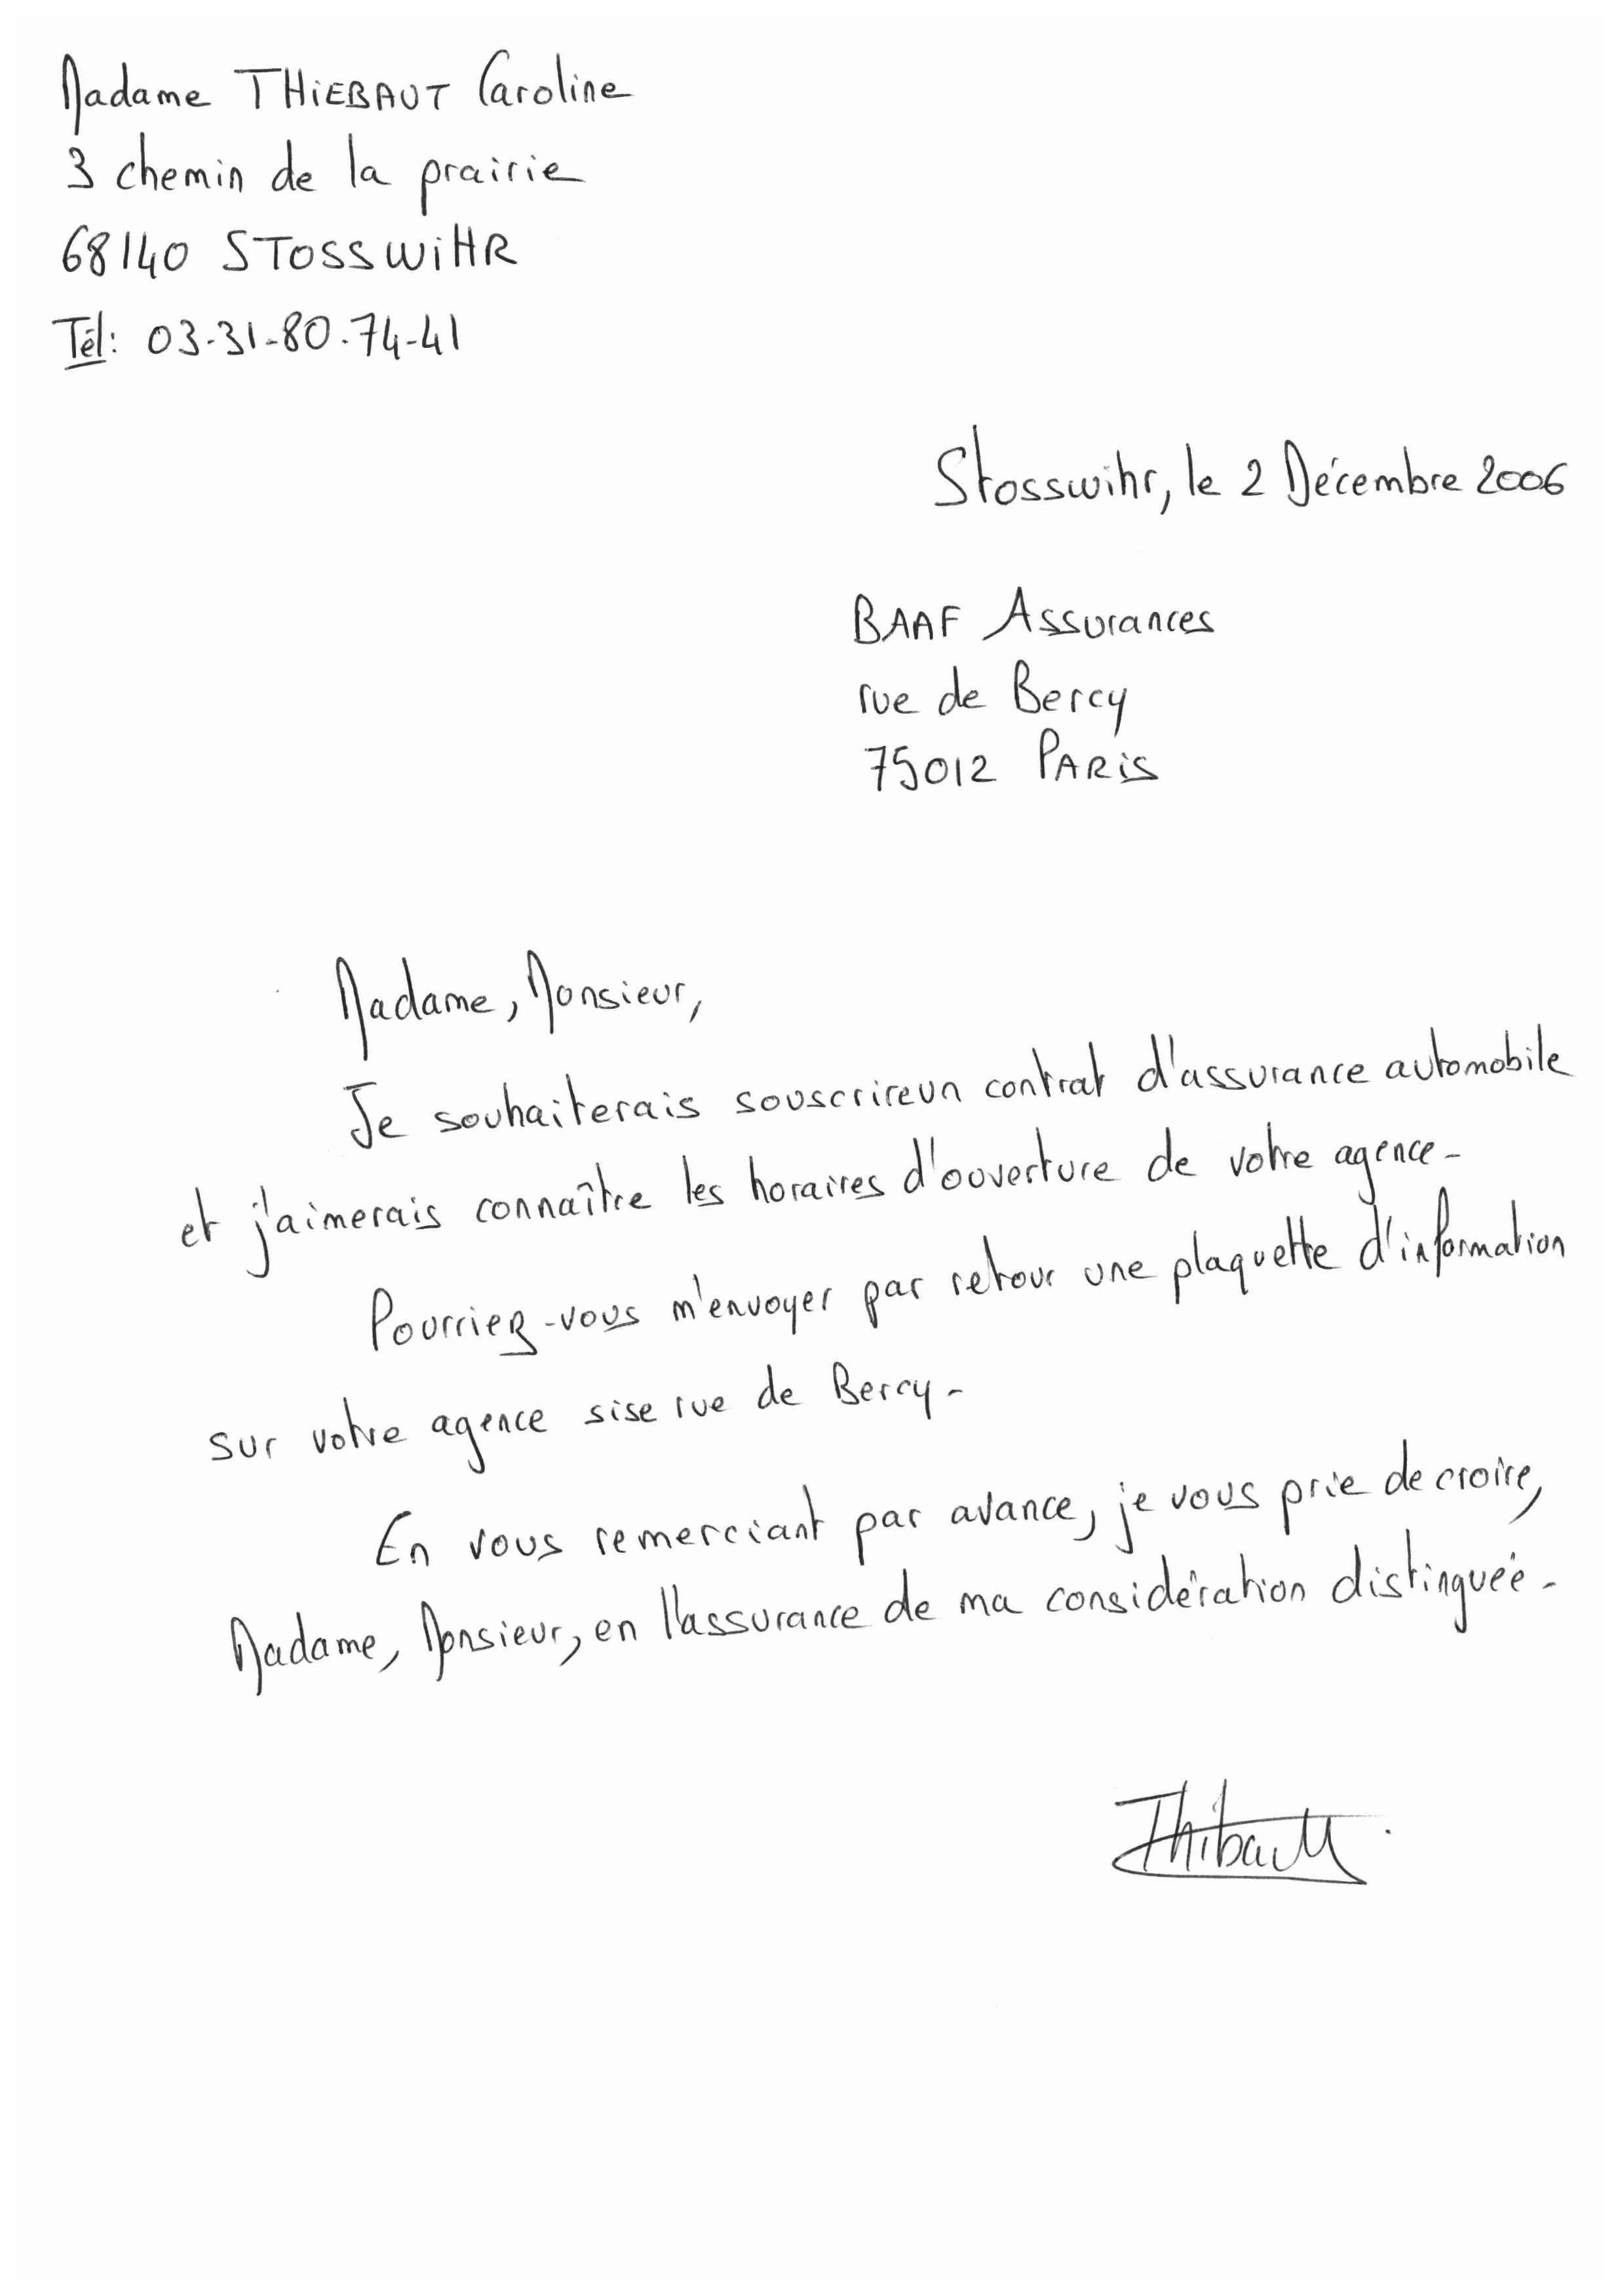 Madame THIEBAUT Caroline
3 chemin de la prairie
68140 STOSSWIHR
Tél: 03-31-80.74-41
Stosswihr, le 2 Décembre 2006
BAAF Assurances
rue de Bercy
75012 PARIS
Madame, Monsieur,
Je souhaiterais souscrireun contrat d'assurance automobile
et j'aimerais connaître les horaires d'ouverture de votre agence-
Pourriez-vous m'envoyer par retour une plaquette d'information
sur votre agence sise rue de Bercy-
En vous remerciant par avance, je vous prie de croire,
Madame, Monsieur, en l'assurance de ma considération distinguée-
Thibault